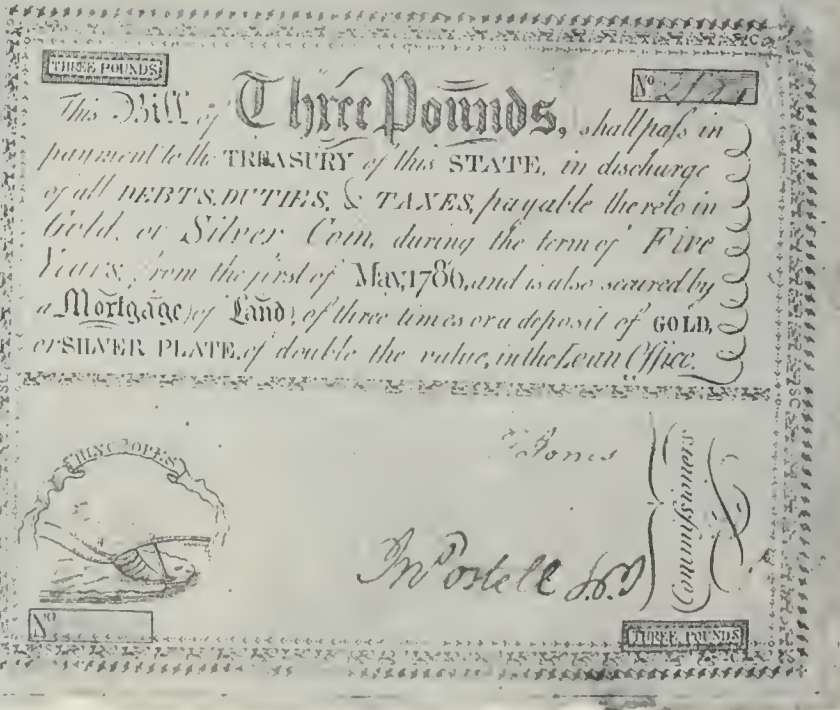 THREE POUNDS
No
This Bill of Three Pounds, shall pass in
payment to the TREASURY of this STATE, in discharge
of all DEBTS, DUTIES, & TAXES, payable thereto in
Gold, or Silver Coin, during the term of Five
Years, from the first of May, 1786, and is also secured by
a Mortgage, of Land, of three times or a deposit of GOLD,
or SILVER PLATE, of double the value, in the Loan Office.
Jones
Jno Postell
Commissioners
No
THREE POUNDS